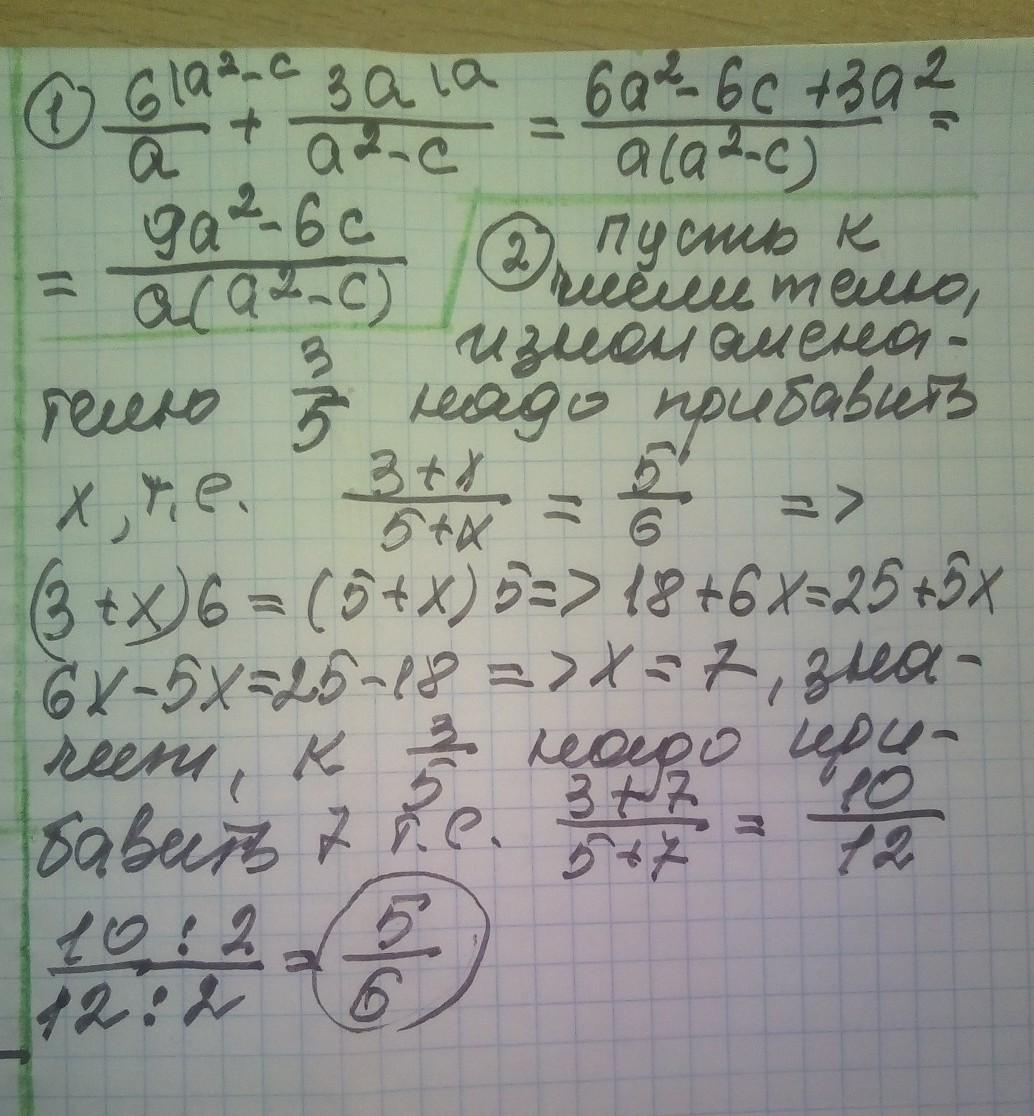 ① 6\a²-c/a + 3a\a/(a²-c) = (6a²-6c+3a²)/(a(a²-c)) =
= (9a²-6c)/(a(a²-c))
② пусть к
числителю,
и знаменa-
телю 3/5 надо прибавить
x, т.е. (3+x)/(5+x) = 5/6 =>
(3+x)6=(5+x)5=>18+6x=25+5x
6x-5x=25-18=>x=7, зна-
чит, к 3/5 надо при-
бавить 7 т.е. (3+7)/(5+7) = 10/12
10:2/12:2 = 5/6